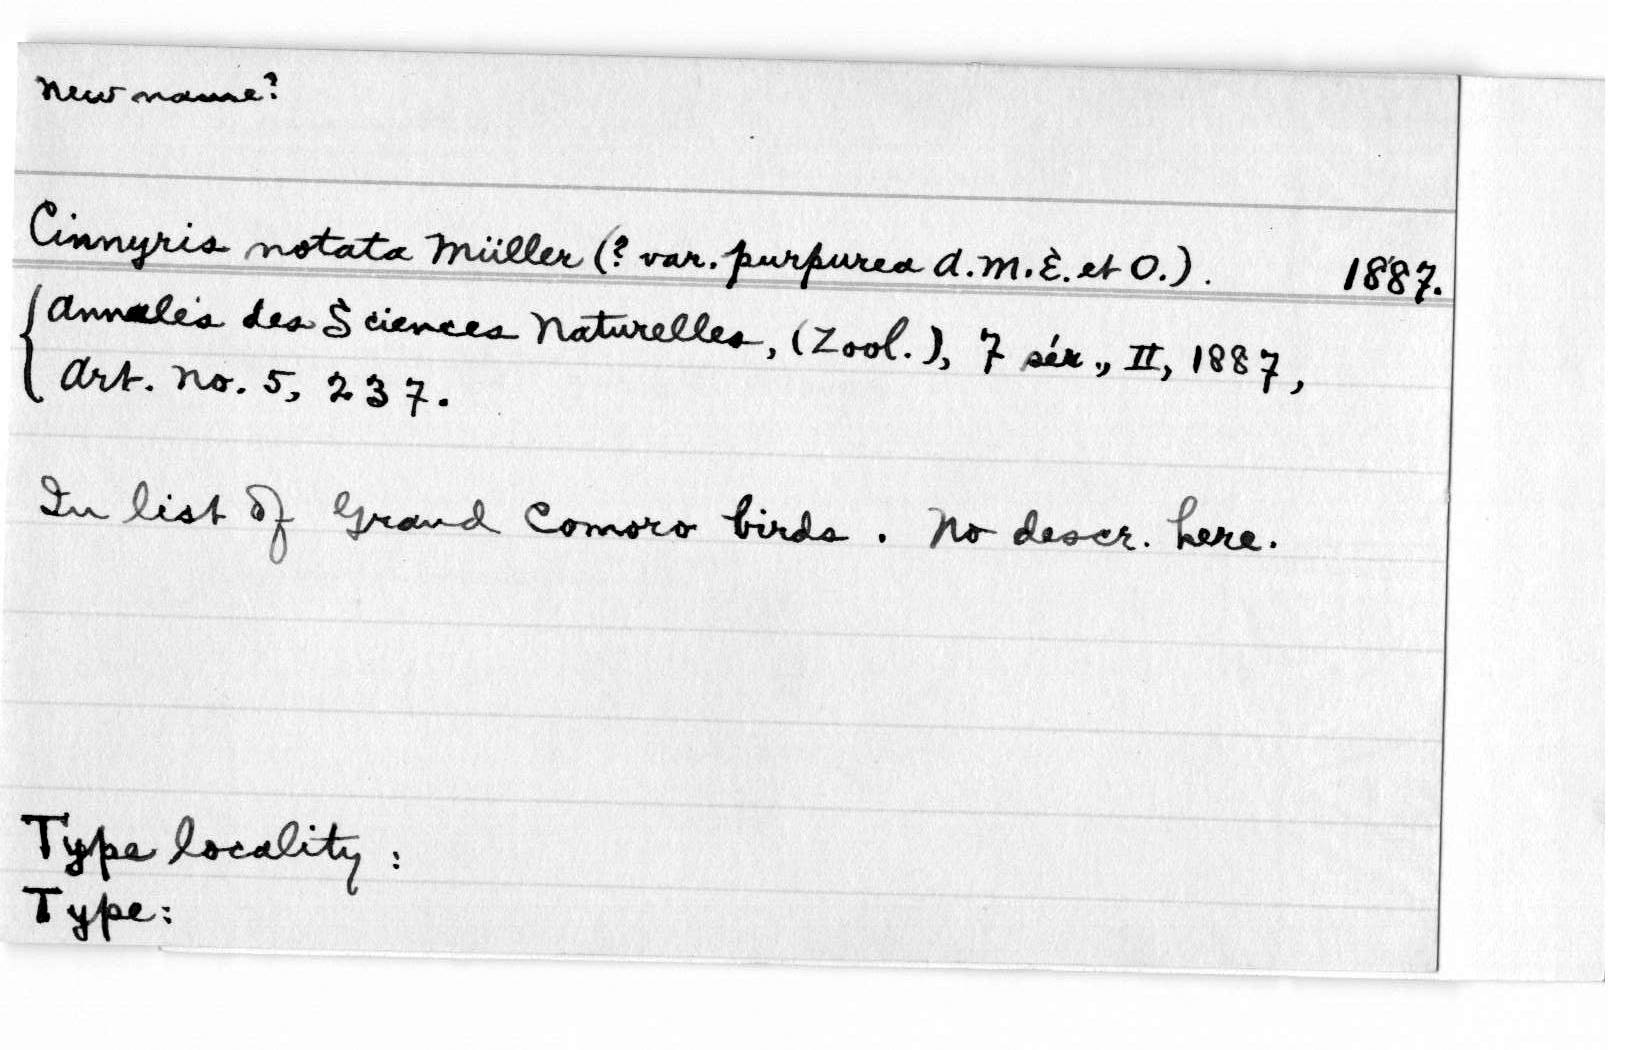 New name?
Cinnyris notata Müller (? var. purpurea A.M.È. et O.). 1887.
Annales des Sciences Naturelles, (Zool.), 7 sér., II, 1887,
Art. No. 5, 237.
In list of Grand Comoro birds. No descr. here.
Type locality:
Type: